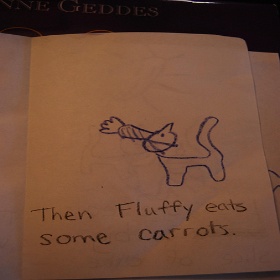 NNE GEDDES
Then Fluffy eats
some carrots.